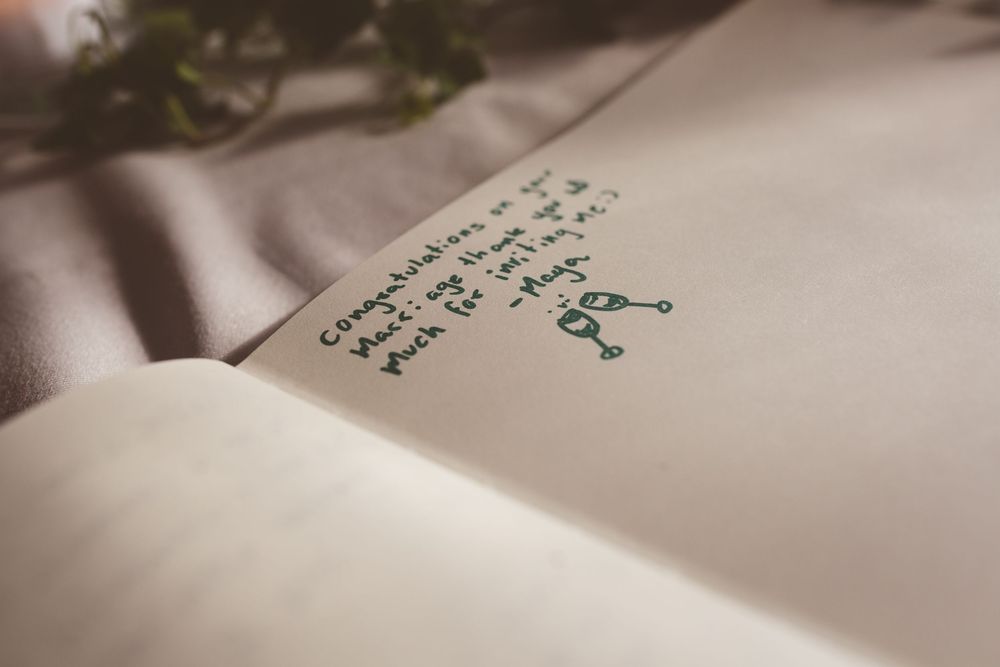 Congratulations on your
Marriage thank you so
much for inviting me:)
- Maya